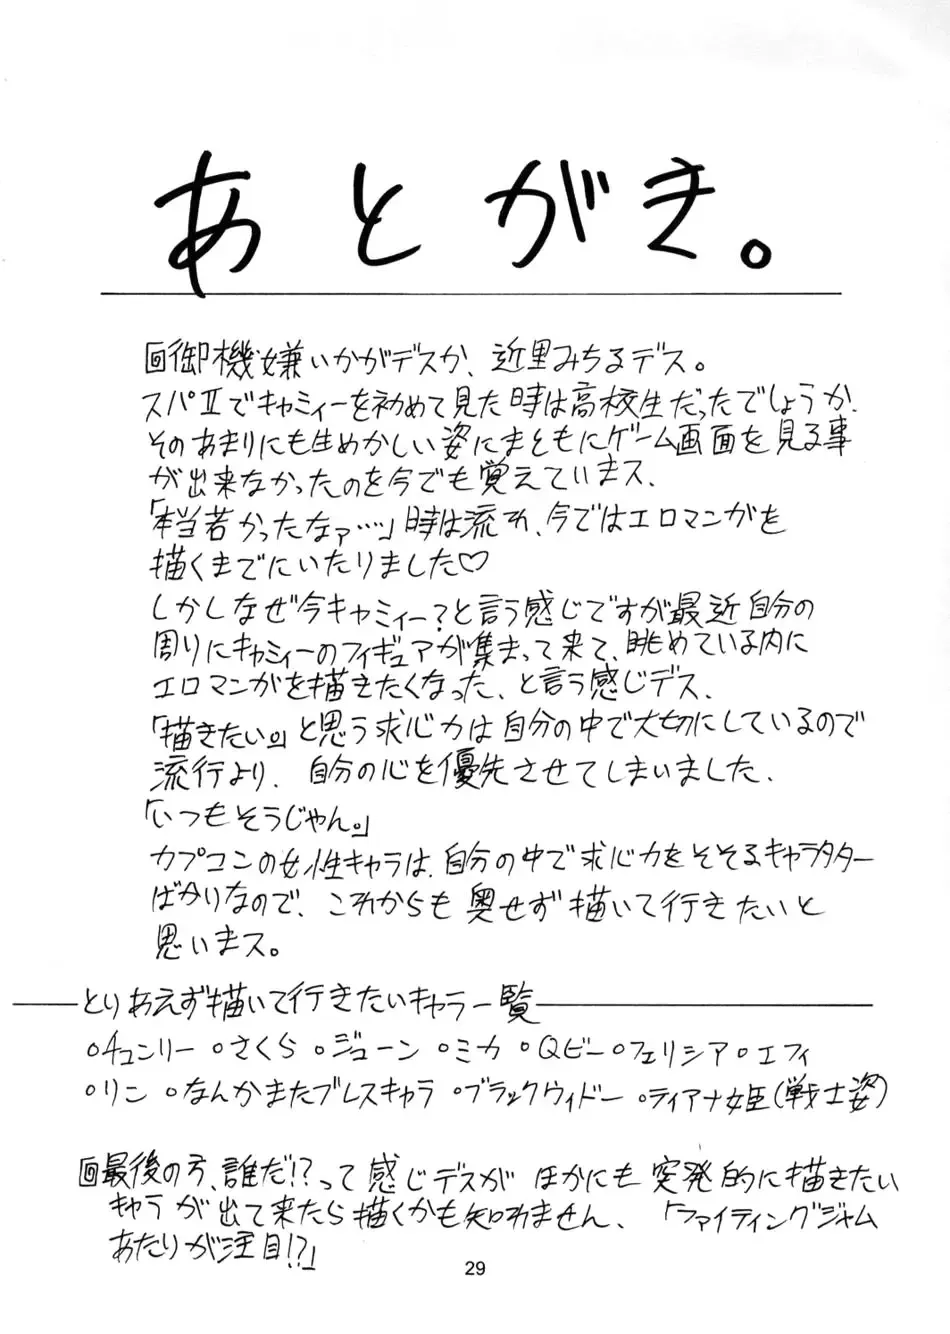 あとがき。
回御機嫌いかがデスか、近里みちるデス。
スパⅡでキャミィーを初めて見た時は高校生だったでしょうか、
そのあまりにも生めかしい姿にまともにゲーム画面を見る事
が出来なかったのを今でも覚えていまス、
「本当若かったなァ…‥」時は流れ、今ではエロマンガを
描くまでにいたりました♡
しかしなぜ今キャミィー?と言う感じですが最近自分の
周りにキャミィーのフィギュアが集まって来て、眺めている内に
エロマンガを描きたくなった、と言う感じデス、
「描きたい。」と思う求心力は自分の中で大切にしているので
流行より、自分の心を優先させてしまいました、
「いつもそうじゃん。」
カプコンの女性キャラは、自分の中で求心力をそそるキャラタター
ばかりなので、これからも奥せず描いて行きたいと
思いまス。
とりあえず描いて行きたいキャラ一覧
○チュンリー ○さくら ○ジューン ○ミカ ○Qビー ○フェリシア ○エフィ
○リン ○なんかまたブレスキャラ ○ブラックウィドー ○ティアナ姫(戦士姿)
回最後の方、誰だ!?って感じデスが ほかにも突発的に描きたい
キャラが出て来たら描くかも知れません、「ファイティングジャム
あたりが注目!?」
29